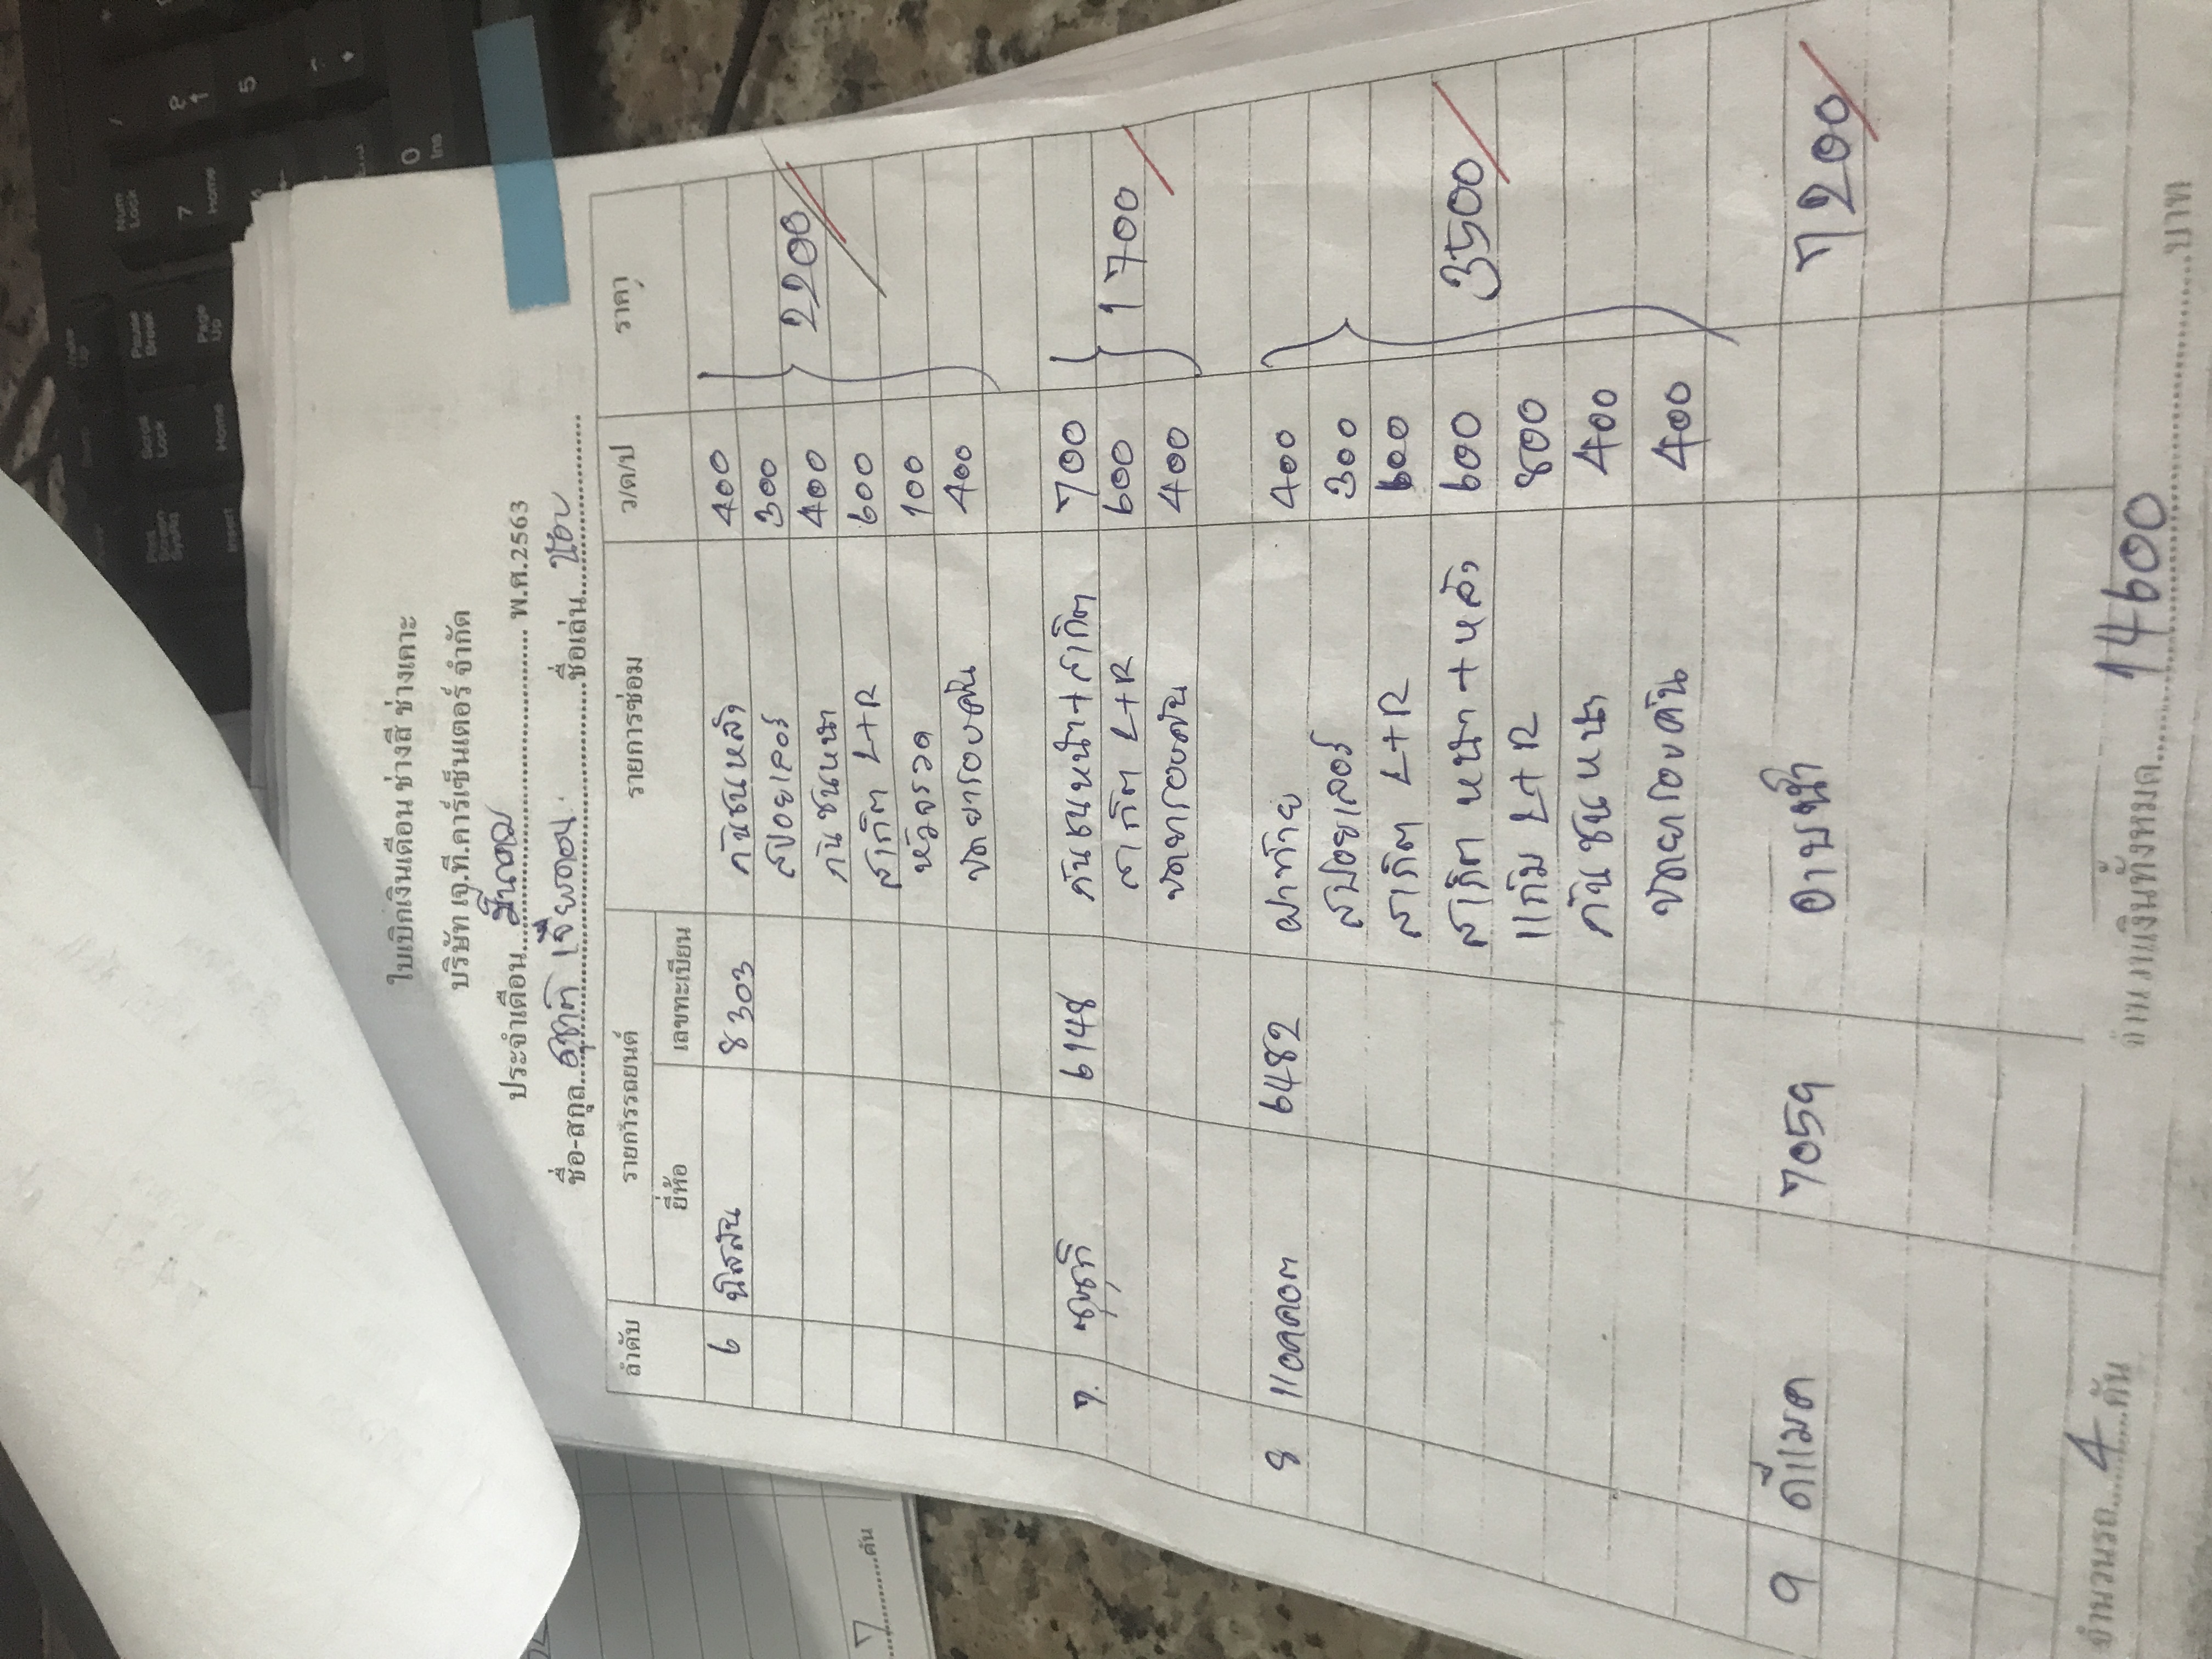 ใบเบิกเงินเดือน ช่างสี ช่างเคาะ
บริษัท เจ.ที.คาร์เซ็นเตอร์ จำกัด
ประจำเดือน มีนาคม พ.ศ.2563
ชื่อ-สกุล สุชาติ ชื่อเล่น
ลำดับ รายการรถยนต์ รายการซ่อม ว/ด/ป ราคา
ยี่ห้อ เลขทะเบียน
6 นิสสัน 8303 กันชนหลัง 400
สปอยเลอร์ 300
กันชนหน้า 400 2200
สเกิต L+R 600
หัวจรวด 100
ชดยารอบคัน 400
7. ซูซูกิ 6148 กันชนหน้า+สเกิต 700
สเกิต L+R 600 1700
ชดยารอบคัน 400
8 แอคคอต 6482 ฝาท้าย 400
สปอยเลอร์ 300
สเกิต L+R 600
สเกิต หน้า+หลัง 600 3500
แก้ม L+R 800
กันชนหน้า 400
ขัดยารอบคัน 400
9 ดีแมค 7059 อาบน้ำ 7200
จำนวนรถ 4 คัน จำนวนเงินทั้งหมด 14600 บาท
7 คัน